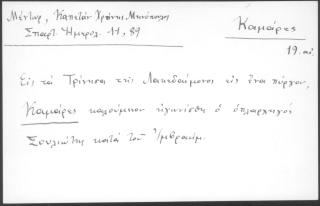 Μένδωρ, Καπετάν Χρόνης Μανιάτης
Σπαρτ. Ἡμερολ. 11, 89
Καμάρες
19. αἰ
Εἰς τὰ Τρίνησα τῆς Λακεδαίμονος εἰς ἕνα πύργον,
Καμάρες καλούμενον ἠγωνίσθη ὁ ὁπλαρχηγός
Σουλιώτης κατὰ τοῦ Ἰμβραήμ.